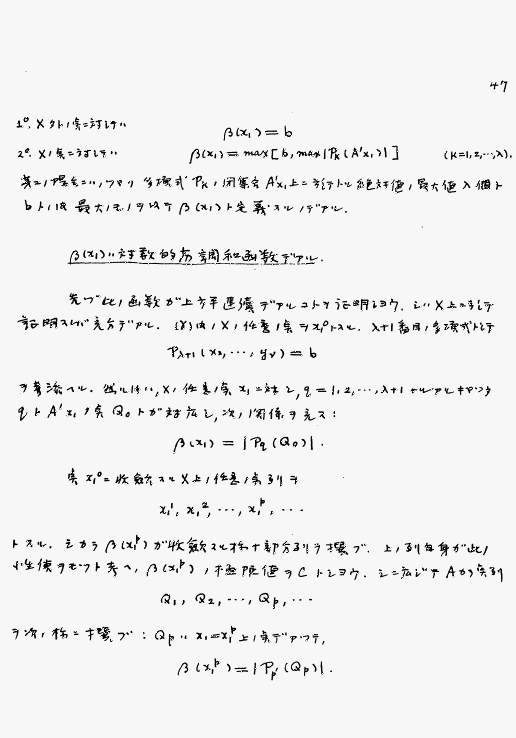 47
1°. X外ノ点ニ対シテハ
β(x₁) = b
2°. Xノ点ニ対シテハ β(x₁) = max[b, max|Pₖ(A'x₁)|] (k=1,2,…,λ).
第二ノ場合ニハ,ツマリ多項式Pₖノ閉集合A'x₁上ニ於ケル絶対値ノ最大値λ個ト
bトノ内最大ノモノヲ以テβ(x₁)ト定義スルノデアル.
β(x₁)ハ対数的劣調和函数デアル.
先ヅ此ノ函数ガ上方半連続デアルコトヲ証明シヨウ. 之ハX上ニ於テ
証明スレバ充分デアル. Xノ任意ノ点ヲx₁⁰トスル. λ+1番目ノ多項式トシテ
P_{λ+1}(x₂,…,y_ν) = b
ヲ考ヘル. 然ルトキハ, Xノ任意ノ点x₁ニ対シ, q=1,2,…,λ+1ナルアルqト
A'x₁ノ点Q₀トガ対応シ,次ノ関係ヲ充ス:
β(x₁) = |P_q(Q₀)|.
点x₁⁰ニ収斂スルX上ノ任意ノ点列ヲ
x₁¹, x₁², …, x₁ᵖ, …
トスル. シカラβ(x₁ᵖ)ガ収斂スル様ナ部分列ヲ撰ブ. 上ノ列自身ガ此ノ
性質ヲモツト考ヘ, β(x₁ᵖ)ノ極限値ヲCトシヨウ. 之ニ応ジテAカラ点列
Q₁, Q₂, …, Qₚ, …
ヲ次ノ様ニ撰ブ: Qₚハx₁=x₁ᵖ上ノ点デアツテ,
β(x₁ᵖ) = |Pₚ'(Qₚ)|.